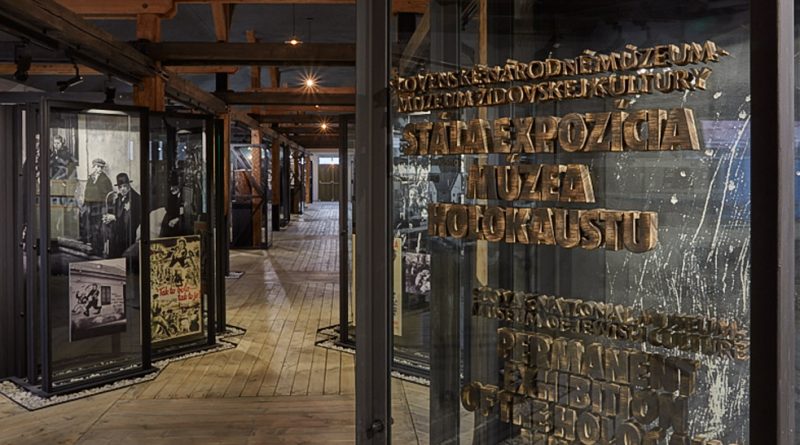 SLOVENSKÉ NÁRODNÉ MÚZEUM-
MÚZEUM ŽIDOVSKEJ KULTÚRY
STÁLA EXPOZÍCIA
MÚZEA
HOLOKAUSTU
NATIONAL MUSEUM-
MUSEUM OF JEWISH CULTURE
PERMANENT
EXHIBITION
OF THE HOLO